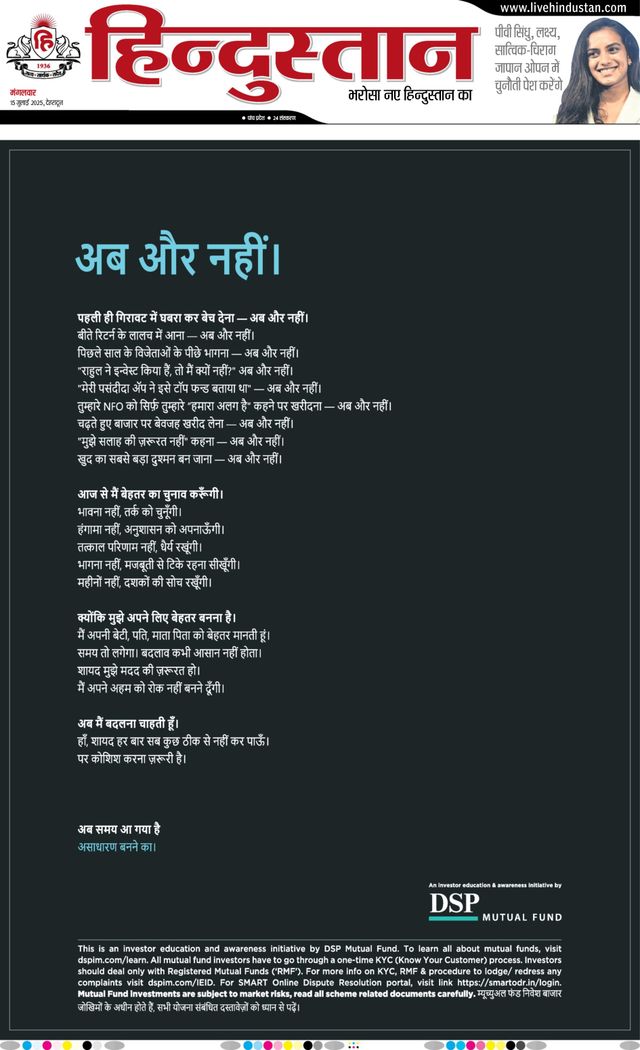 www.livehindustan.com
हि
1936
हिन्दुस्तान
भरोसा नए हिन्दुस्तान का
मंगलवार
15 जुलाई 2025, देहरादून
● पांच प्रदेश ● 24 संस्करण
पीवी सिंधु, लक्ष्य,
सात्विक-चिराग
जापान ओपन में
चुनौती पेश करेंगे
अब और नहीं।
पहली ही गिरावट में घबरा कर बेच देना — अब और नहीं।
बीते रिटर्न के लालच में आना — अब और नहीं।
पिछले साल के विजेताओं के पीछे भागना — अब और नहीं।
"राहुल ने इन्वेस्ट किया हैं, तो मैं क्यों नहीं?" अब और नहीं।
"मेरी पसंदीदा ॲप ने इसे टॉप फन्ड बताया था" — अब और नहीं।
तुम्हारे NFO को सिर्फ़ तुम्हारे "हमारा अलग है" कहने पर खरीदना — अब और नहीं।
चढ़ते हुए बाजार पर बेवजह खरीद लेना — अब और नहीं।
"मुझे सलाह की ज़रूरत नहीं" कहना — अब और नहीं।
खुद का सबसे बड़ा दुश्मन बन जाना — अब और नहीं।
आज से मैं बेहतर का चुनाव करूँगी।
भावना नहीं, तर्क को चुनूँगी।
हंगामा नहीं, अनुशासन को अपनाऊँगी।
तत्काल परिणाम नहीं, धैर्य रखूंगी।
भागना नहीं, मजबूती से टिके रहना सीखूँगी।
महीनों नहीं, दशकों की सोच रखूँगी।
क्योंकि मुझे अपने लिए बेहतर बनना है।
मैं अपनी बेटी, पति, माता पिता को बेहतर मानती हूं।
समय तो लगेगा। बदलाव कभी आसान नहीं होता।
शायद मुझे मदद की ज़रूरत हो।
मैं अपने अहम को रोक नहीं बनने दूँगी।
अब मैं बदलना चाहती हूँ।
हाँ, शायद हर बार सब कुछ ठीक से नहीं कर पाऊँ।
पर कोशिश करना ज़रूरी है।
अब समय आ गया है
असाधारण बनने का।
An investor education & awareness initiative by
DSP
MUTUAL FUND
This is an investor education and awareness initiative by DSP Mutual Fund. To learn all about mutual funds, visit
dspim.com/learn. All mutual fund investors have to go through a one-time KYC (Know Your Customer) process. Investors
should deal only with Registered Mutual Funds ('RMF'). For more info on KYC, RMF & procedure to lodge/ redress any
complaints visit dspim.com/IEID. For SMART Online Dispute Resolution portal, visit link https://smartodr.in/login.
Mutual Fund Investments are subject to market risks, read all scheme related documents carefully. म्यूच्युअल फंड निवेश बाजार
जोखिमों के अधीन होते हैं, सभी योजना संबंधित दस्तावेज़ों को ध्यान से पढ़ें।